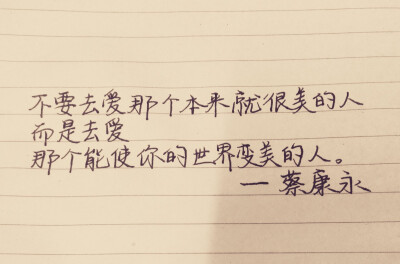 不要去爱那个本来就很美的人
而是去爱
那个能使你的世界变美的人。
— 蔡康永